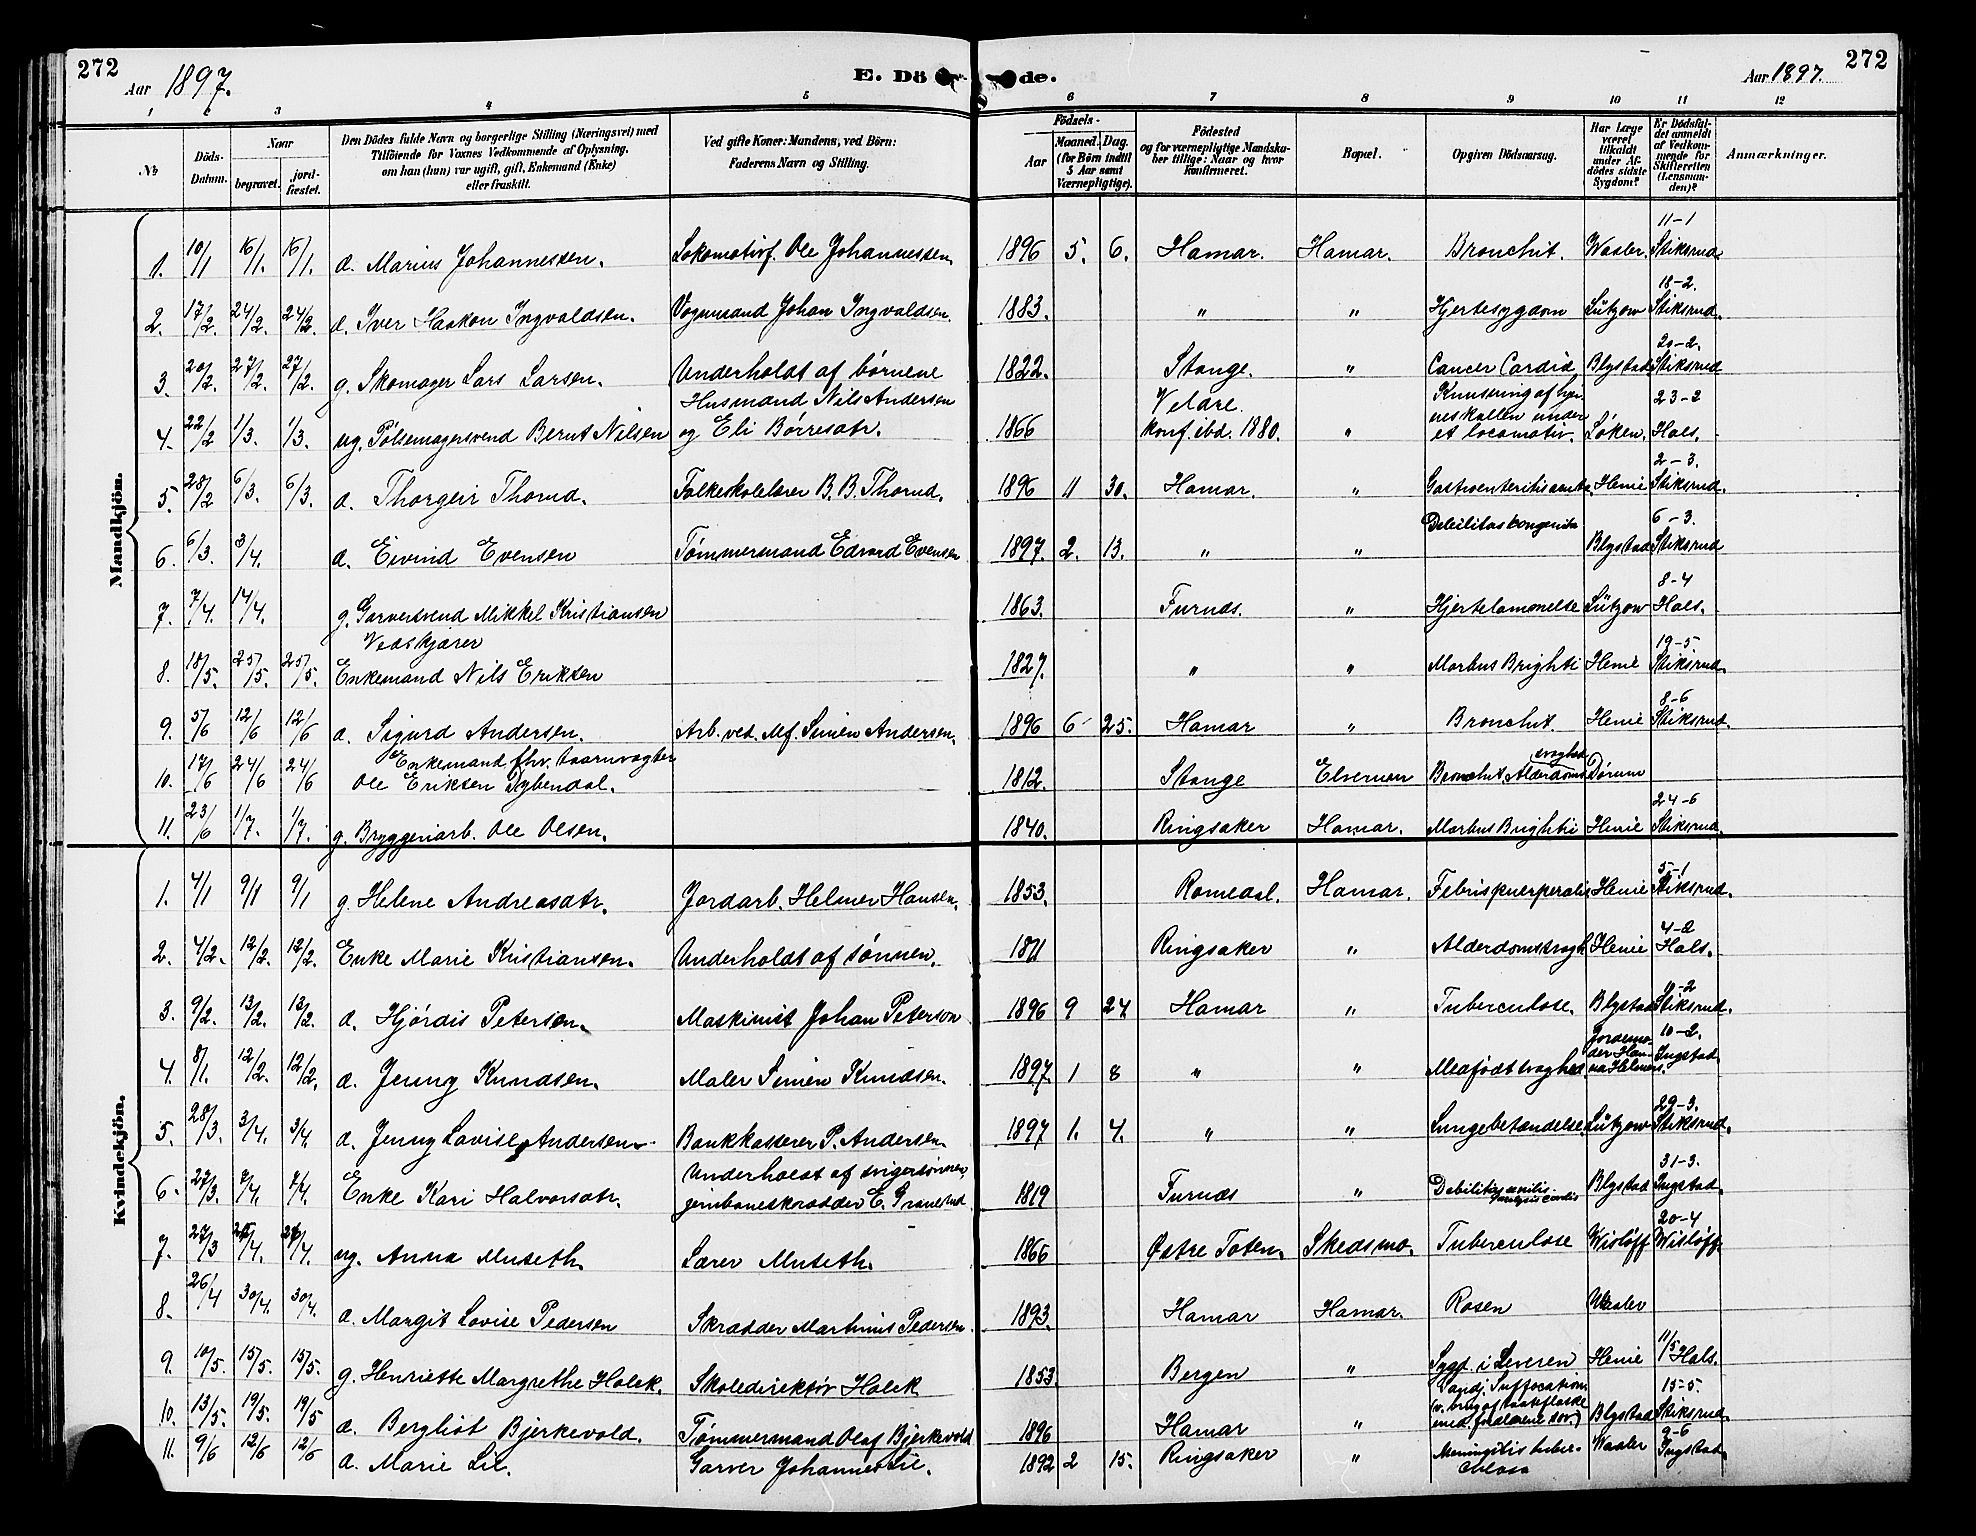 272
Aar 1897.
E. Dö de.
Aar 1897.
272
1 2 3 4 5 6 7 8 9 10 11 12
No
Döds-Datum.
Naar
begravet.
jordfæstet.
Den Dödes fulde Navn og borgerlige Stilling (Næringsvei) med
Tilföiende for Voxnes Vedkommende af Oplysning,
om han (hun) var ugift, gift, Enkemand (Enke)
eller fraskilt.
Ved gifte Koner: Mandens, ved Börn:
Faderens Navn og Stilling.
Födsels-
Aar
Maaned. Dag.
(for Börn indtil
5 Aar samt
Værnepligtige).
Födested
og for værnepligtige Mandska-
ber tillige: Naar og hvor
konfirmeret.
Bopæl.
Opgiven Dödsaarsag.
Har Læge
været
tilkaldt
under Af-
dödes sidste
Sygdom?
Er Dödsfal-
det anmeldt
af Vedkom-
mende for
Skifteretten
(Lensman-
den)?
Anmærkninger.
Mandkjön.
1. 10/1 16/1. 16/1. d. Marius Johannessen. Lokomotivf. Ole Johannessen. 1896 5. 6. Hamar. Hamar. Bronchit. Waaler. 11-1 Stiksrud.
2. 17/2 24/2. 24/2. d. Iver Haakon Ingvaldsen. Vognmand Johan Ingvaldsen. 1883. " " Hjertesygdom Lützow 18-2. Stiksrud.
3. 20/2. 27/2. 27/2. g. Skomager Lars Larsen. Underholdt af børnene 1822. Stange. " Cancer Cardiæ Blystad Stiksrud
4. 22/2 1/3. 1/3. ug. Pølsemagersvend Bernt Nilsen Husmand Nils Andersen og Eli Børresdtr. 1866 Veldre. konf. ibd. 1880. " Knusning af hjerneskallen under et locomotiv. Løken. 23-2 Hals.
5. 28/2 6/3. 6/3. d. Thorgeir Thorud. Folkeskolelærer B. B. Thorud. 1896 11 30. Hamar. " Gastroenteritis acuta. Henie 2-3. Stiksrud.
6. 6/3. 3/4. d. Eivind Evensen Tømmermand Edvard Evensen 1897. 2. 13. " " Debilitas congenita Blystad 6-3. Stiksrud
7. 7/4. 14/4. g. Garversvend Mikkel Kristiansen 1863. Furnæs. " Hjertelammelse Lützow 8-4 Hals.
8. 18/5. 25/5. 25/5. Vedskjærer Enkemand Nils Eriksen 1827. " " Morbus Brighti Henie 19-5. Stiksrud.
9. 5/6 12/6 12/6 d. Sigurd Andersen. Arb. ved. Mf. Simen Andersen. 1896 6 25. Hamar " Bronchit. Henie 8-6 Stiksrud.
10. 17/6 24/6 24/6 Enkemand fhv. taarnvægter Ole Eriksen Dybendal. 1812. Stange Elverum Bronchit Alderdomssvaghed Dørum
11. 23/6 1/7. 1/7. g. Bryggeriarb. Ole Olsen. 1840. Ringsaker Hamar. Morbus Brightii Henie 24-6 Stiksrud.
Kvindekjön.
1. 4/1 9/1 9/1 g. Helene Andreasdtr. Jordarb. Helmer Hansen. 1853. Romedal. Hamar. Febris puerperalis Henie 5-1 Stiksrud.
2. 4/2. 12/2. 12/2. Enke Marie Kristiansen. Underholdt af sønnen. 1811 Ringsaker " Alderdomssvagh. Henie 4-2 Hals.
3. 9/2. 13/2. 13/2. d. Hjórdis Petersen. Maskinist Johan Peterson 1896 9 24 Hamar " Tuberculose. Blystad Stiksrud.
4. 8/1. 12/2. 12/2. d. Jenny Knudsen. Maler Simen Knudsen. 1897 1 8 " " Medfødt svaghed. Jordemoder Hanna Helmers. 10-2. Ingstad
5. 28/3. 3/4. 3/4. d. Jenny Lovise Andersen. Bankkasserer P. Andersen. 1897 1. 4. " " Lungebetændelse. Lützow 29-3. Stiksrud.
6. 27/3. 7/4. 7/4. Enke Kari Halvorsdtr. Underholdt af svigersønnen, jernbaneskrædder E. Granerud 1819 Furnæs " Debilitas senilis Paralysis cordis Blystad 31-3. Ingstad.
7. 27/3 ug. Anna Museth. Lærer Museth. 1866 Østre Toten. Skedsmo. Tuberculose Wisløff 20-4 Wisløff
8. 26/4 30/4. 30/4. d. Margit Lovise Pedersen Skrædder Martinus Pedersen. 1893. Hamar Hamar. Rosen Waaler
9. 10/5. 15/5. 15/5. g. Henriette Margrethe Holck. Skoledirektør Holck 1853. Bergen " Sygd. i Leveren Henie 11/5 Hals.
10. 13/5. 19/5. 19/5 d. Bergliot Bjerkevold. Tømmermand Olaf Bjerkevold 1896 Hamar " Suffocation (v. brug af taateflaske med forældrene sov.) Blystad 15-5. Stiksrud.
11. 9/6 12/6 12/6 d. Marie Lie. Garver Johannes Lie. 1892 2 15. Ringsaker " Meningitis tuberculosa Waaler 9-6 Ingstad.